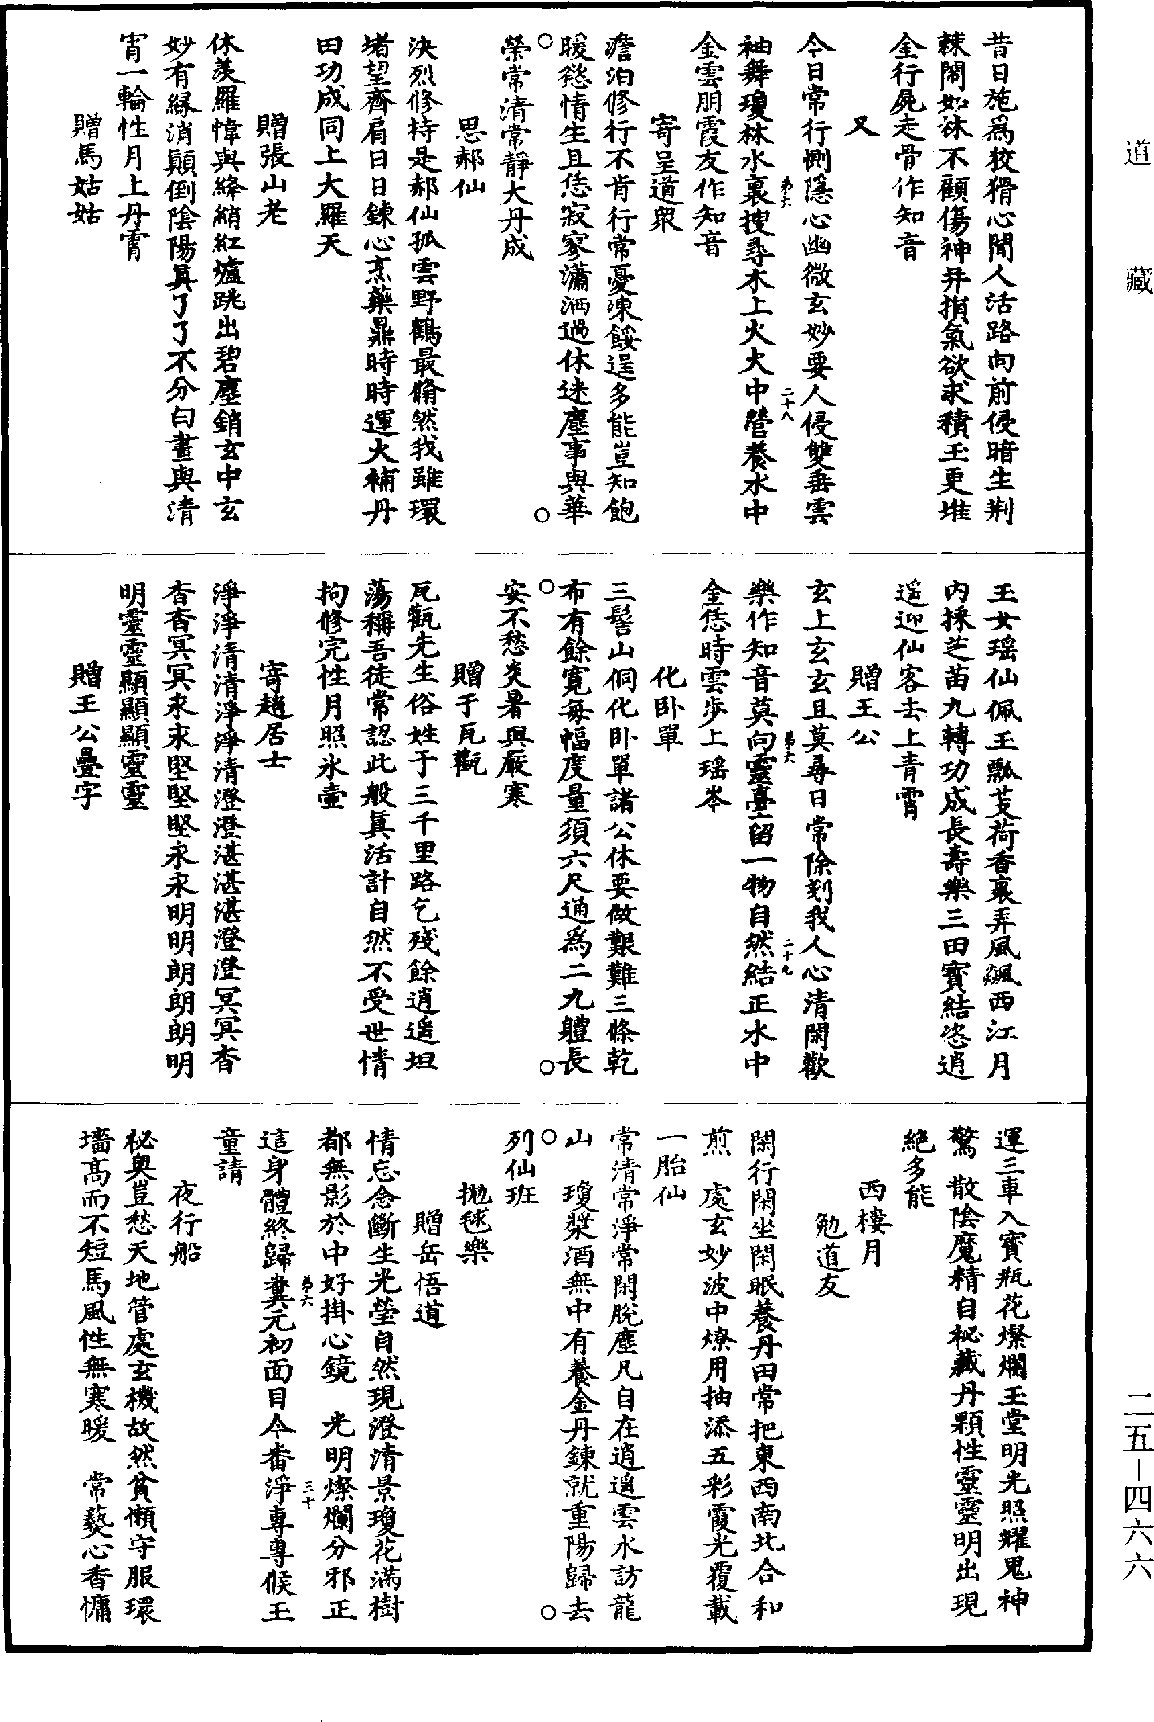 道藏
昔日施爲狡猾心閒人活路向前侵暗生荆
棘鬧如麻不顧傷神并損氣欲求積玉更堆
金行屍走骨作知音
又
今日常行惻隱心幽微玄妙要人侵雙垂雲
袖舞瓊林水裏搜尋木上火火中營養水中
金雲朋霞友作知音
寄呈道衆
澹泊修行不肯行常憂凍餒逞多能豈知飽
暖慾情生且恁寂寥瀟洒過休迷塵事與華
榮常清常靜大丹成
思郝仙
決烈修持是郝仙孤雲野鶴最翛然我雖環
堵望齊肩日日鍊心烹藥鼎時時運火補丹
田功成同上大羅天
贈張山老
休羨羅幃與絳綃紅爐跳出碧塵銷玄中玄
妙有緣消顚倒陰陽眞了了不分白晝與清
宵一輪性月上丹霄
贈馬姑姑
玉女瑶仙佩玉瓢芰荷香裏弄風飆西江月
内採芝苗九轉功成長壽樂三田寶結恣逍
遥迎仙客去上青霄
贈王公
玄上玄玄且莫尋日常除剗我人心清閑歡
樂作知音莫向靈臺留一物自然結正水中
金恁時雲步上瑶岑
化卧單
三髻山侗化卧單諸公休要做艱難三條乾
布有餘寬每幅度量須六尺通爲二九軆長
安不愁炎暑與嚴寒
贈于瓦甎
瓦甎先生俗姓于三千里路乞殘餘逍遥坦
蕩稱吾徒常認此般眞活計自然不受世情
拘修完性月照氷壺
寄趙居士
淨淨清清淨淨清澄澄湛湛湛澄澄冥冥杳
杳杳冥冥永永堅堅堅永永明明朗朗朗明
明靈靈顯顯顯靈靈
贈王公疊字
運三車入寳瓶花燦爛玉堂明光照耀鬼神
驚　散陰魔精自祕藏丹顆性靈靈明出現
絶多能
西樓月
勉道友
閑行閑坐閑眠養丹田常把東西南北合和
煎　處玄妙波中燎用抽添五彩霞光覆載
一胎仙
常清常淨常閑脫塵凡自在逍遥雲水訪龍
山　瓊漿酒無中有養金丹鍊就重陽歸去
列仙班
抛毬樂
贈岳悟道
情忘念斷生光瑩自然現澄清景瓊花滿樹
都無影於中好掛心鏡　光明燦爛分邪正
這身軆終歸糞元初面目今番淨專專候玉
童請
夜行船
祕奥豈愁天地管處玄機故然貧懶守服環
墻髙而不短馬風性無寒暖　常爇心香慵
第六
二十八
第六
二十九
第六
三十
二五－四六六